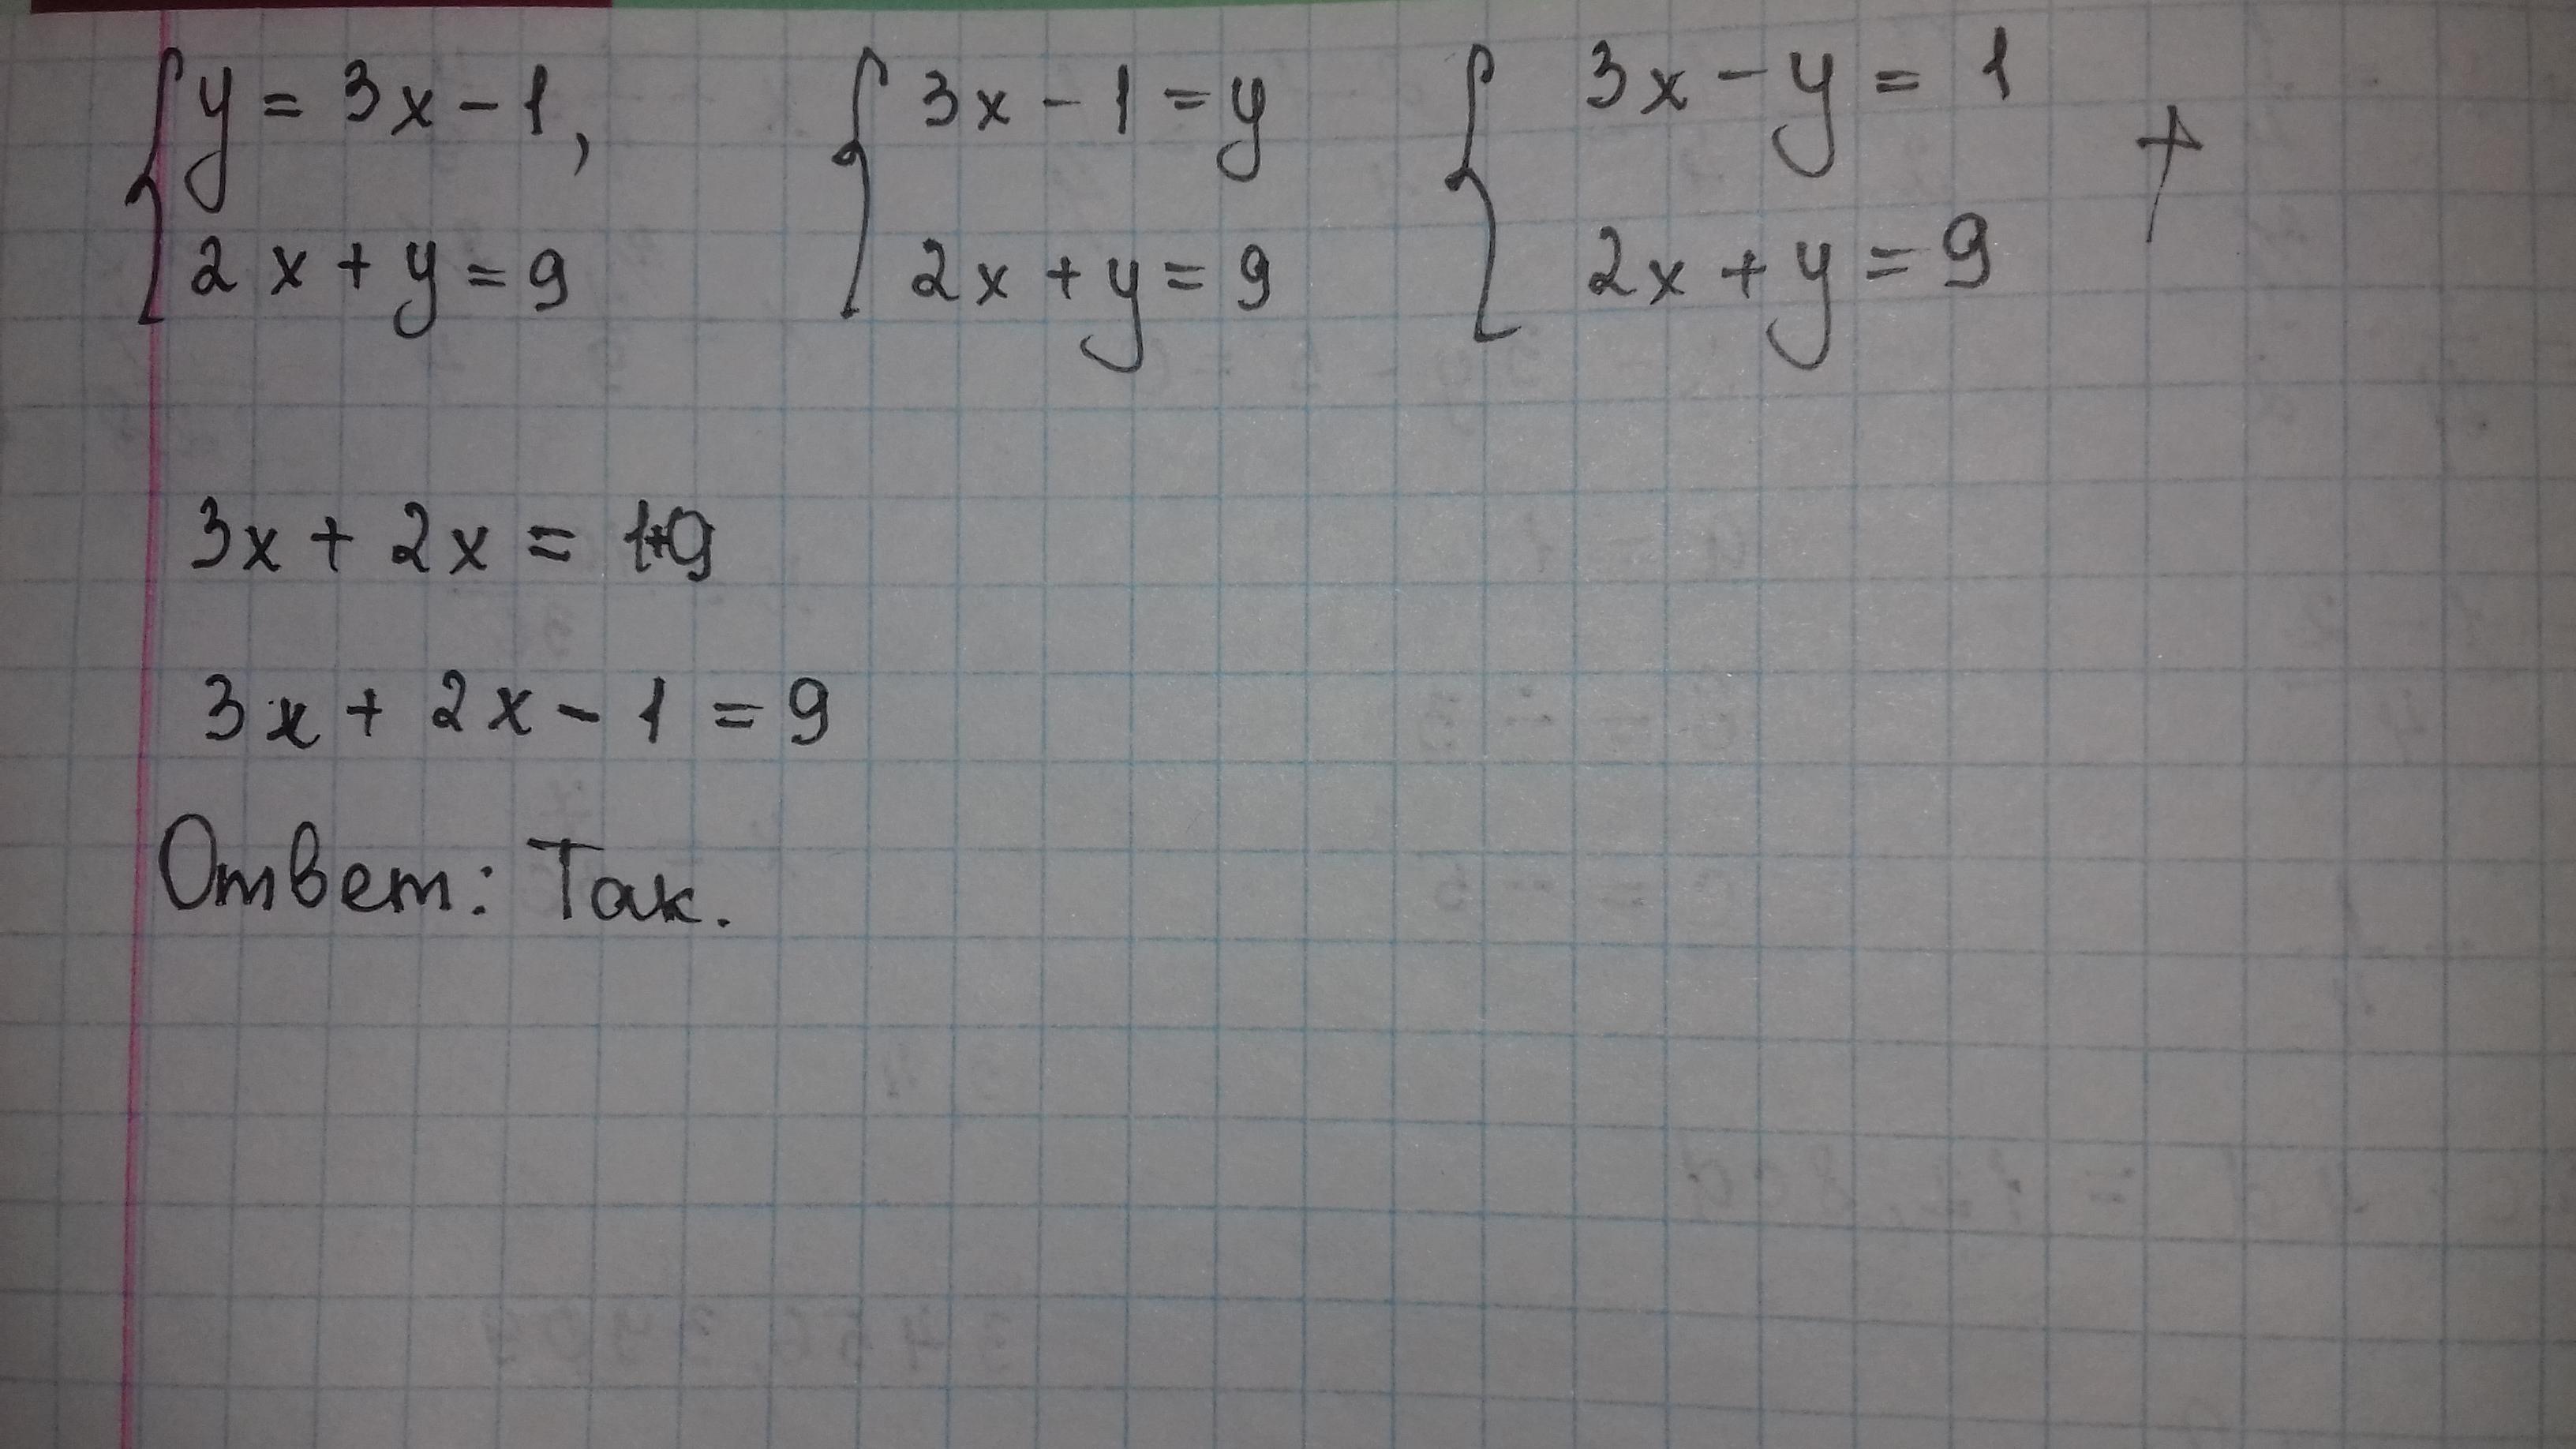 y = 3x - 1,
2x + y = 9
3x - 1 = y
2x + y = 9
3x - y = 1
2x + y = 9
+
3x + 2x = 1+9
3x + 2x - 1 = 9
Ответ: Так.